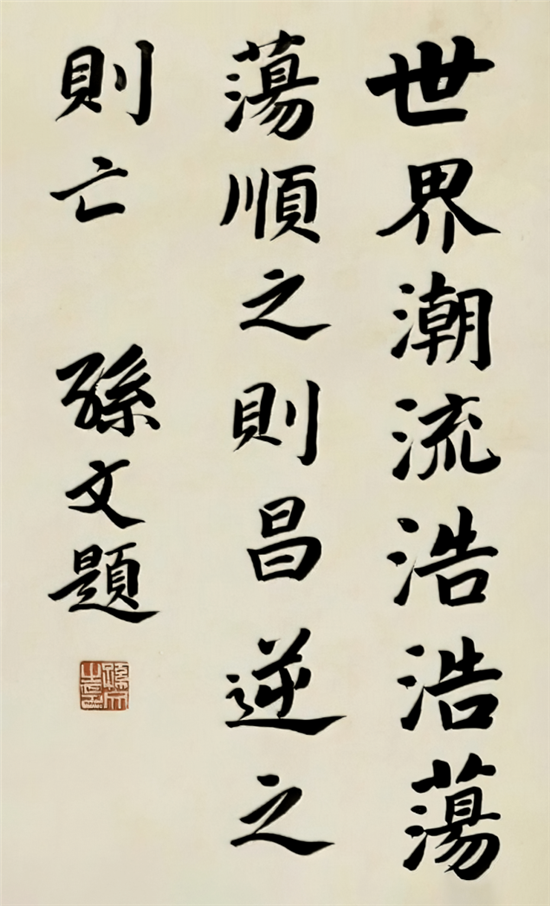 世界潮流浩浩蕩
蕩順之則昌逆之
則亡 孫文題
孫文之璽